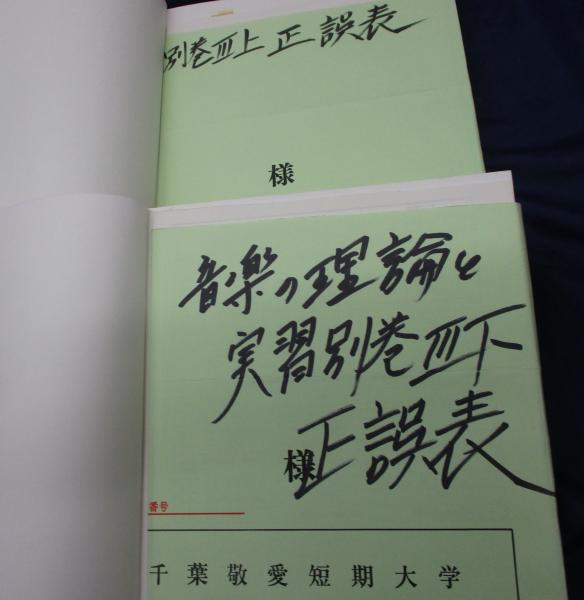 別巻Ⅲ上 正誤表
様
音楽の理論と
実習別巻Ⅲ下
正誤表
様
番号
千葉敬愛短期大学